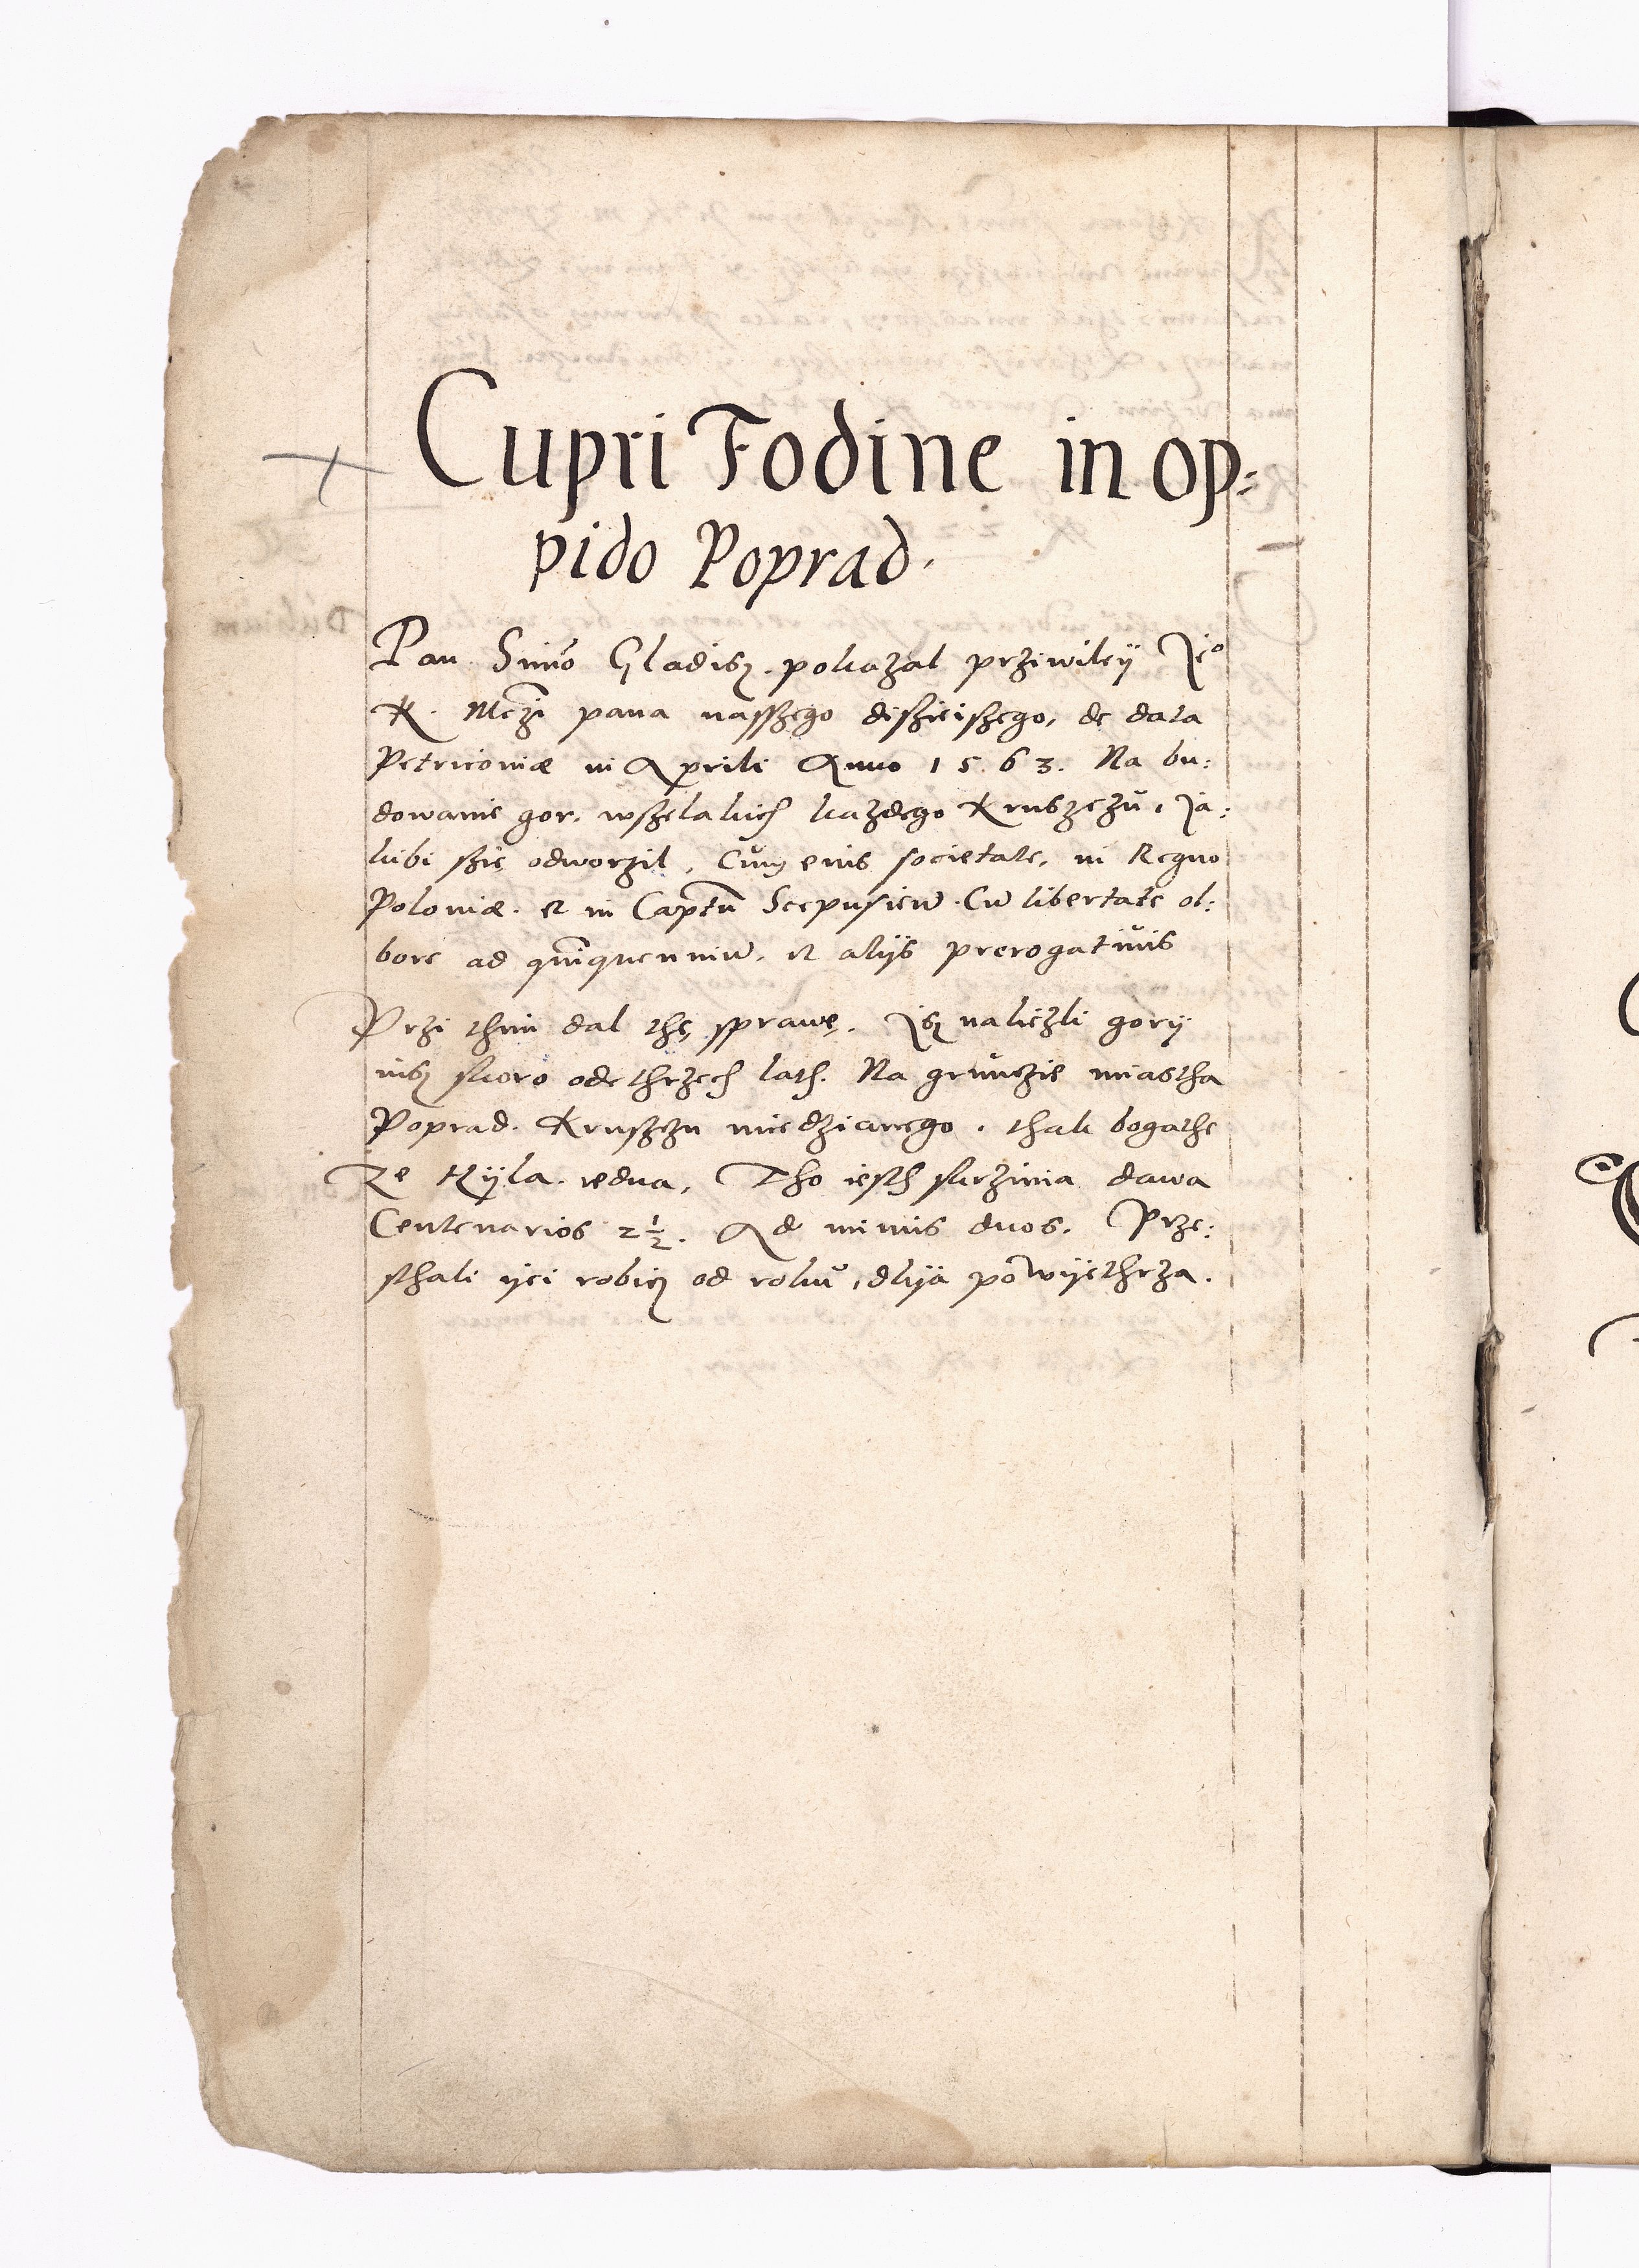 Cupri Fodine in op⸗
pido Poprad.
Pan Simō Gladisz. pokazal prziwiley Jeº
K. Mczi pana nasszego diszieiszego, de data
Petricoviæ in Aprili Anno 1563. Na bu:
dowanie gor. wszelakich kazdego Kruszczu, Ja:
kibi szie odworzil, Cum eius societate, in Regno
Poloniæ. et in Captu Scepusien. Cū libertate ol:
bore ad quinquenniū, et alijs prerogativis
Przi thim dal thę sprawę. Isz nalieźli gory
iusz skoro ode thrzech lath. Na grunczie miastha
Poprad. Kruszczu miedzianego. thak bogathe
Ze Kijla. iedna, Tho iesth skrzinia dawa
Centenarios 2½. Ad minus duos. Prze:
sthali ijei robicz od roku, dlija powijethrza.